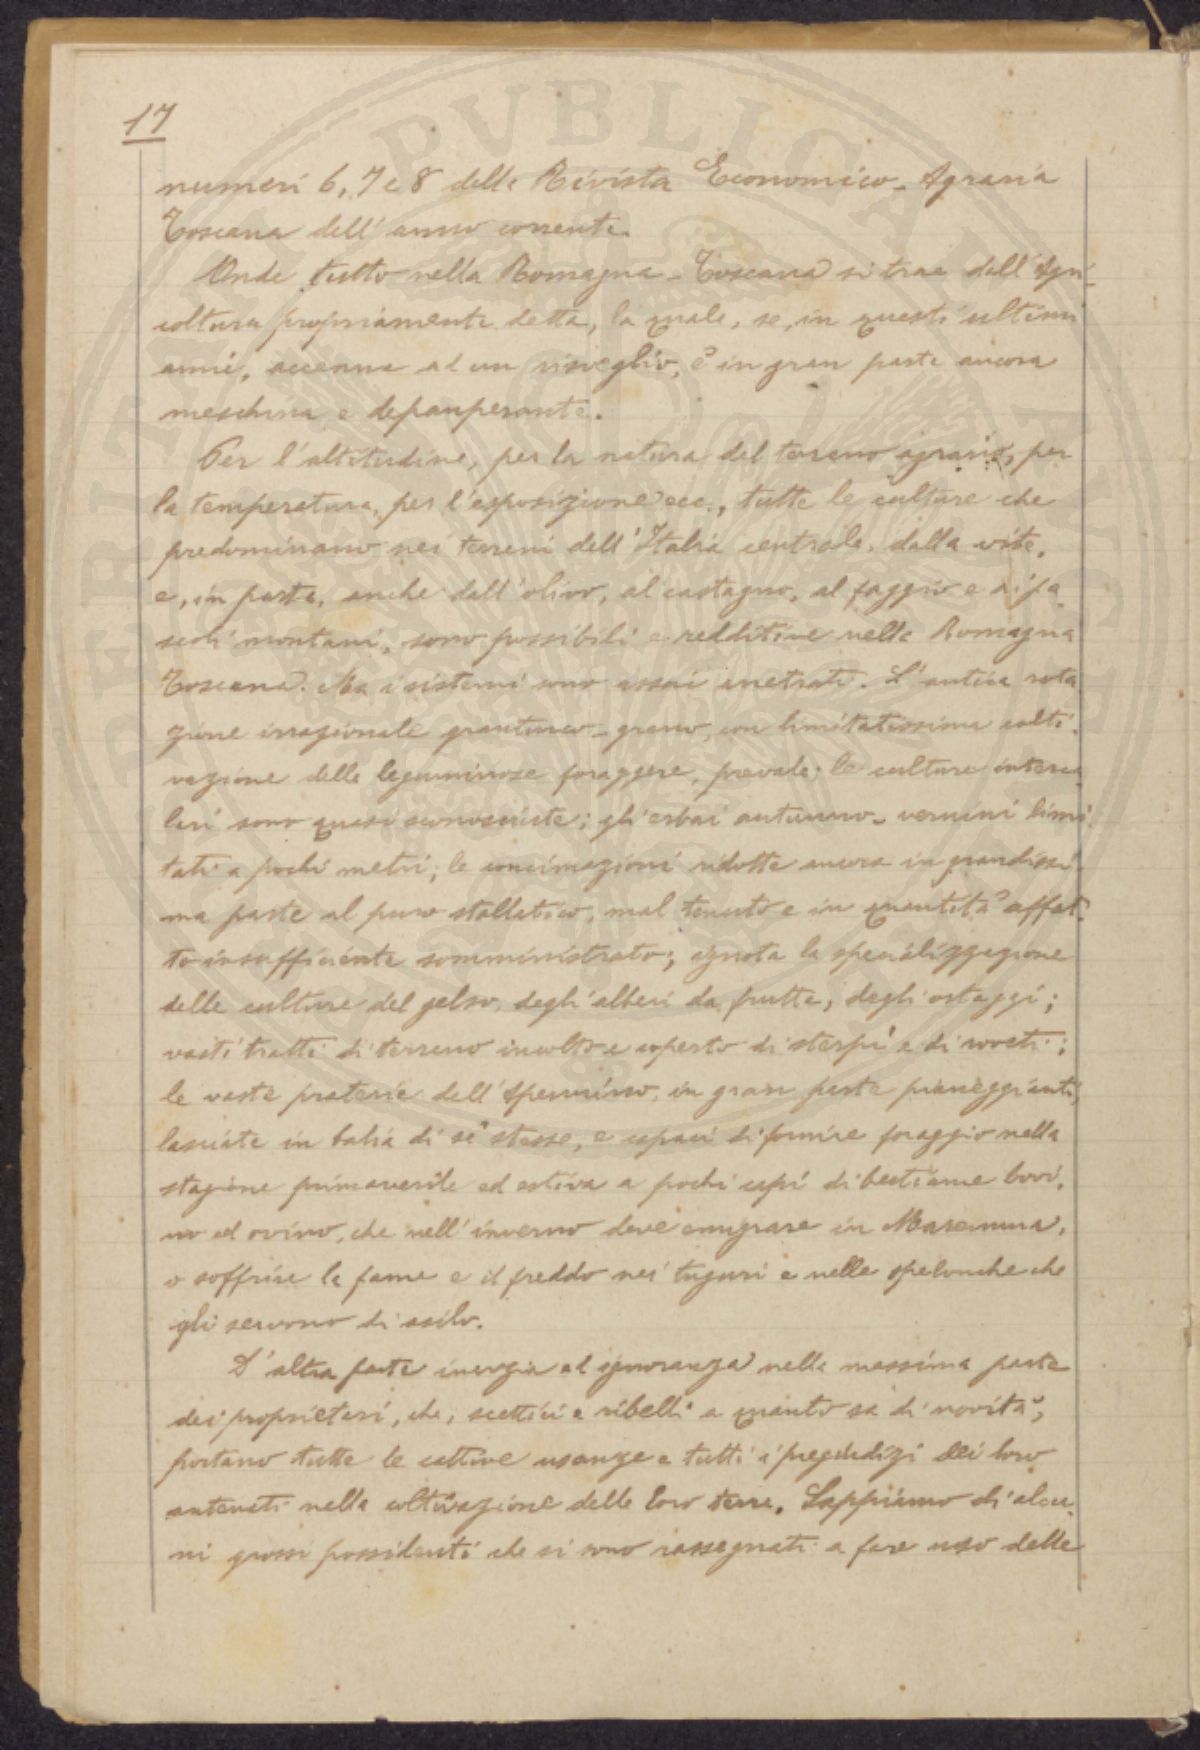 17
numeri 6, 7 e 8 della Rivista Economico-Agraria
Toscana dell'anno corrente.
Onde tutto nella Romagna-Toscana si trae dall'Agri-
coltura propriamente detta, la quale, se, in questi ultimi
anni, accenna ad un risveglio, è in gran parte ancora
meschina e depauperante.
Per l'altitudine, per la natura del terreno agrario, per
la temperatura, per l'esposizione ecc., tutte le culture che
predominano nei terreni dell'Italia centrale, dalla vite,
e, in parte, anche dall'olivo, al castagno, al faggio e ai pa-
scoli montani, sono possibili e redditive nella Romagna
Toscana. Ma i sistemi sono assai arretrati. L'antica rota
zione irrazionale granturco-grano, con limitatissima colti-
vazione delle leguminose foraggere, prevale; le culture interca
lari sono quasi sconosciute; gli erbai autunno-vernini limi
tati a pochi metri; le concimazioni ridotte ancora in grandissi
ma parte al puro stallatico, mal tenuto e in quantità affat-
to insufficiente somministrato; ignota la specializzazione
delle culture del gelso, degli alberi da frutta, degli ortaggi;
vasti tratti di terreno incolto e coperto di sterpi e di roveti;
le vaste praterie dell'Apennino, in gran parte pianeggianti,
lasciate in balia di sè stesse, e capaci di fornire foraggio nella
stagione primaverile ed estiva a pochi capi di bestiame bovi-
no ed ovino, che nell'inverno deve emigrare in Maremma,
o soffrire la fame e il freddo nei tuguri e nelle spelonche che
gli servono di asilo.
D'altra parte inerzia ed ignoranza nella massima parte
dei proprietari, che, scettici e ribelli a quanto sa di novità,
portano tutte le cattive usanze e tutti i pregiudizi dei loro
antenati nella coltivazione delle loro terre. Sappiamo di alcu-
ni grossi possidenti che si sono rassegnati a fare uso delle